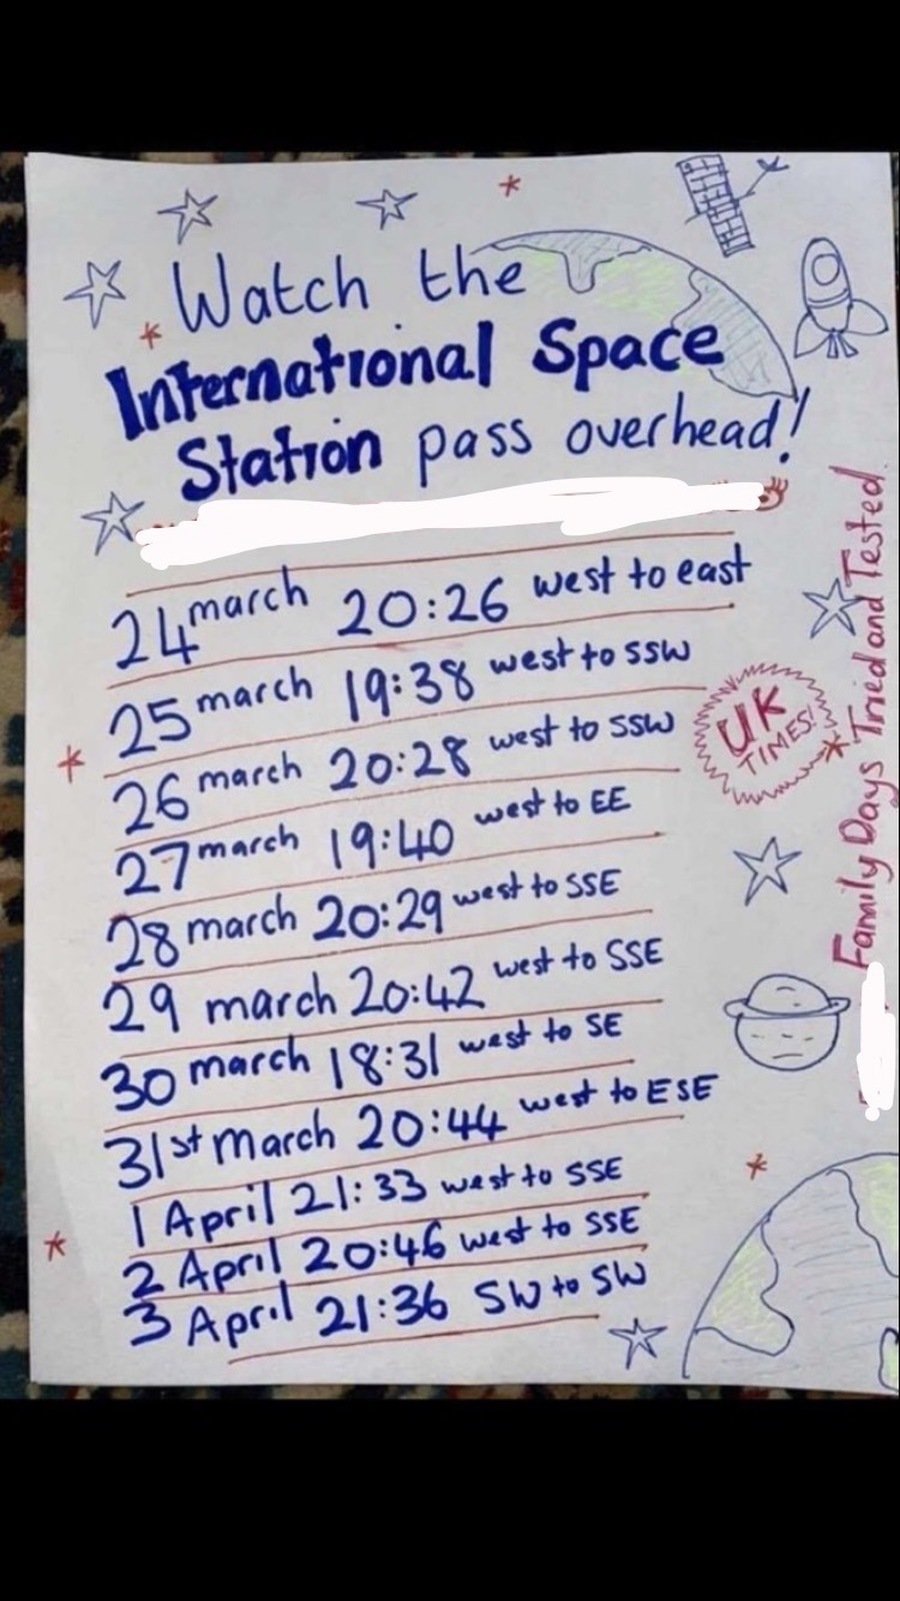 Watch the
International Space
Station pass overhead!
24 march 20:26 west to east
25 march 19:38 west to SSW
26 march 20:28 west to SSW
27 march 19:40 west to EE
28 march 20:29 west to SSE
29 march 20:42 west to SSE
30 march 18:31 west to SE
31st March 20:44 west to ESE
1 April 21:33 west to SSE
2 April 20:46 west to SSE
3 April 21:36 SW to SW
UK
TIMES!
Family Days Tried and Tested